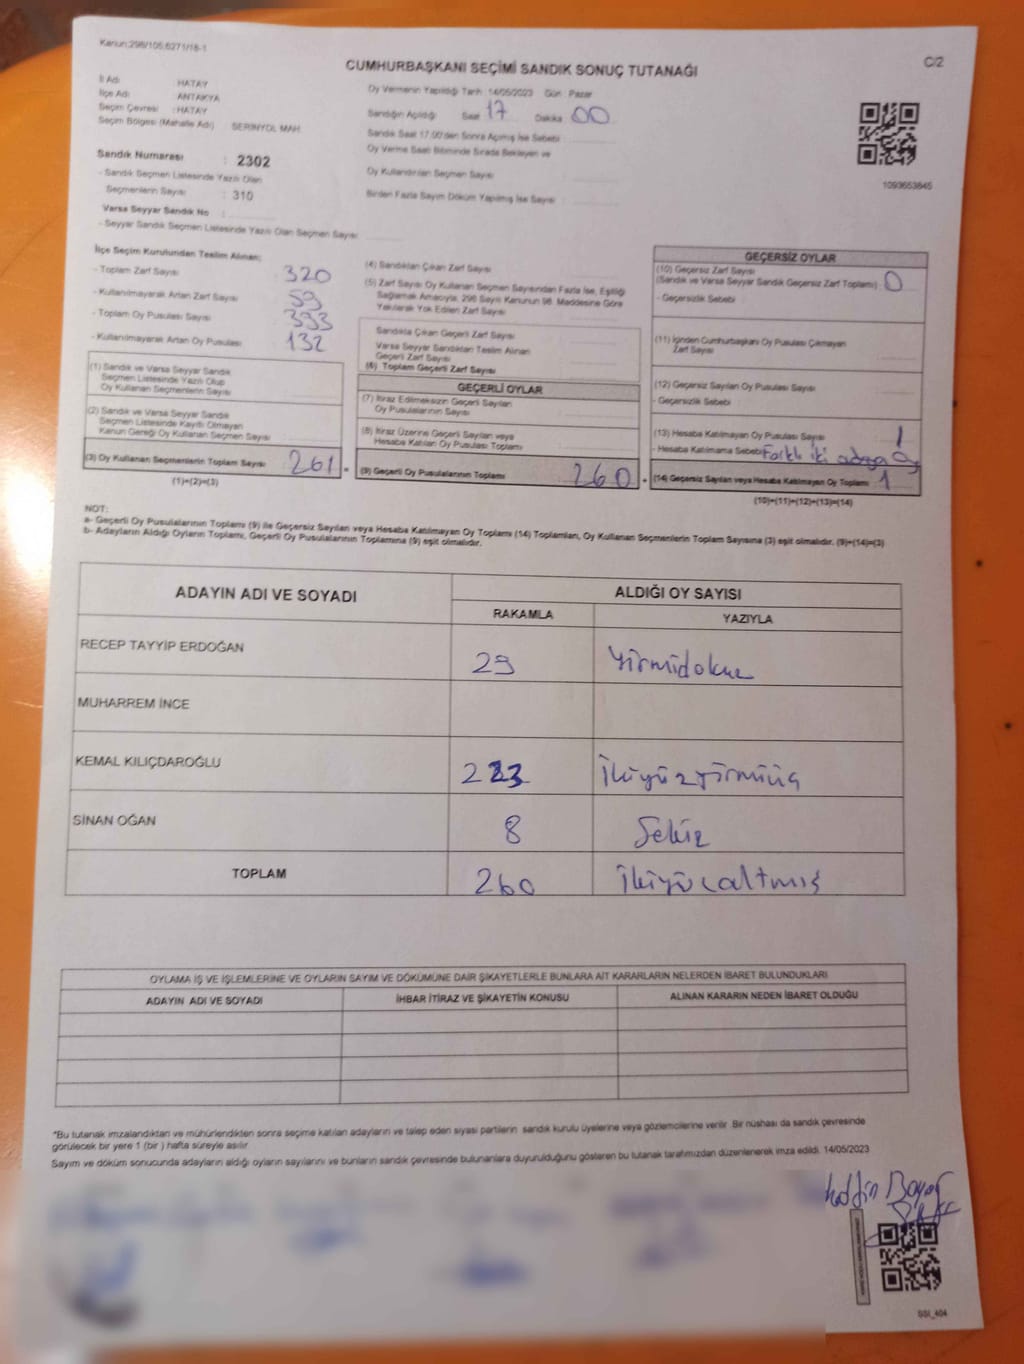 Kanun:298/105;6271/18-1
C/2
CUMHURBAŞKANI SEÇİMİ SANDIK SONUÇ TUTANAĞI
İl Adı : HATAY
İlçe Adı : ANTAKYA
Seçim Çevresi : HATAY
Seçim Bölgesi (Mahalle Adı) : SERİNYOL MAH.
Oy Vermenin Yapıldığı Tarih : 14/05/2023 Gün : Pazar
Sandığın Açıldığı Saat : 17 Dakika : 00
Sandık Saat 17.00'den Sonra Açılmış İse Sebebi :
Oy Verme Saati Bitiminde Sırada Bekleyen ve
Oy Kullandırılan Seçmen Sayısı :
Birden Fazla Sayım Döküm Yapılmış İse Sayısı :
1093653845
Sandık Numarası : 2302
- Sandık Seçmen Listesinde Yazılı Olan
Seçmenlerin Sayısı : 310
Varsa Seyyar Sandık No :
- Seyyar Sandık Seçmen Listesinde Yazılı Olan Seçmen Sayısı
İlçe Seçim Kurulundan Teslim Alınan;
- Toplam Zarf Sayısı : 320
- Kullanılmayarak Artan Zarf Sayısı : 59
- Toplam Oy Pusulası Sayısı : 393
- Kullanılmayarak Artan Oy Pusulası : 132
(1) Sandık ve Varsa Seyyar Sandık
Seçmen Listesinde Yazılı Olup
Oy Kullanan Seçmenlerin Sayısı :
(2) Sandık ve Varsa Seyyar Sandık
Seçmen Listesinde Kayıtlı Olmayan
Kanun Gereği Oy Kullanan Seçmen Sayısı :
(3) Oy Kullanan Seçmenlerin Toplam Sayısı : 261 =
(1)+(2)=(3)
(4) Sandıktan Çıkan Zarf Sayısı :
(5) Zarf Sayısı Oy Kullanan Seçmen Sayısından Fazla İse, Eşitliği
Sağlamak Amacıyla, 298 Sayılı Kanunun 98. Maddesine Göre
Yakılarak Yok Edilen Zarf Sayısı :
Sandıkta Çıkan Geçerli Zarf Sayısı
Varsa Seyyar Sandıktan Teslim Alınan
Geçerli Zarf Sayısı
(6) Toplam Geçerli Zarf Sayısı
GEÇERLİ OYLAR
(7) İtiraz Edilmeksizin Geçerli Sayılan
Oy Pusulalarının Sayısı :
(8) İtiraz Üzerine Geçerli Sayılan veya
Hesaba Katılan Oy Pusulası Toplamı :
(9) Geçerli Oy Pusulalarının Toplamı : 260 +
GEÇERSİZ OYLAR
(10) Geçersiz Zarf Sayısı
(Sandık ve Varsa Seyyar Sandık Geçersiz Zarf Toplamı) : 0
- Geçersizlik Sebebi :
(11) İçinden Cumhurbaşkanı Oy Pusulası Çıkmayan
Zarf Sayısı :
(12) Geçersiz Sayılan Oy Pusulası Sayısı :
- Geçersizlik Sebebi :
(13) Hesaba Katılmayan Oy Pusulası Sayısı : 1
- Hesaba Katılmama Sebebi : Farklı iki adaya oy
(14) Geçersiz Sayılan veya Hesaba Katılmayan Oy Toplamı : 1
(10)+(11)+(12)+(13)=(14)
NOT:
a- Geçerli Oy Pusulalarının Toplamı (9) ile Geçersiz Sayılan veya Hesaba Katılmayan Oy Toplamı (14) Toplamları, Oy Kullanan Seçmenlerin Toplam Sayısına (3) eşit olmalıdır. (9)+(14)=(3)
b- Adayların Aldığı Oyların Toplamı, Geçerli Oy Pusulalarının Toplamına (9) eşit olmalıdır.
ADAYIN ADI VE SOYADI
ALDIĞI OY SAYISI
RAKAMLA YAZIYLA
RECEP TAYYİP ERDOĞAN 29 Yirmidokuz
MUHARREM İNCE
KEMAL KILIÇDAROĞLU 223 İkiyüzyirmiüç
SİNAN OĞAN 8 Sekiz
TOPLAM 260 İkiyüzaltmış
OYLAMA İŞ VE İŞLEMLERİNE VE OYLARIN SAYIM VE DÖKÜMÜNE DAİR ŞİKAYETLERLE BUNLARA AİT KARARLARIN NELERDEN İBARET BULUNDUKLARI
ADAYIN ADI VE SOYADI İHBAR İTİRAZ VE ŞİKAYETİN KONUSU ALINAN KARARIN NEDEN İBARET OLDUĞU
*Bu tutanak imzalandıktan ve mühürlendikten sonra seçime katılan adayların ve talep eden siyasi partilerin sandık kurulu üyelerine veya gözlemcilerine verilir. Bir nüshası da sandık çevresinde
görülecek bir yere 1 (bir) hafta süreyle asılır.
Sayım ve döküm sonucunda adayların aldığı oyların sayılarını ve bunların sandık çevresinde bulunanlara duyurulduğunu gösteren bu tutanak tarafımızdan düzenlenerek imza edildi. 14/05/2023
SSI_404